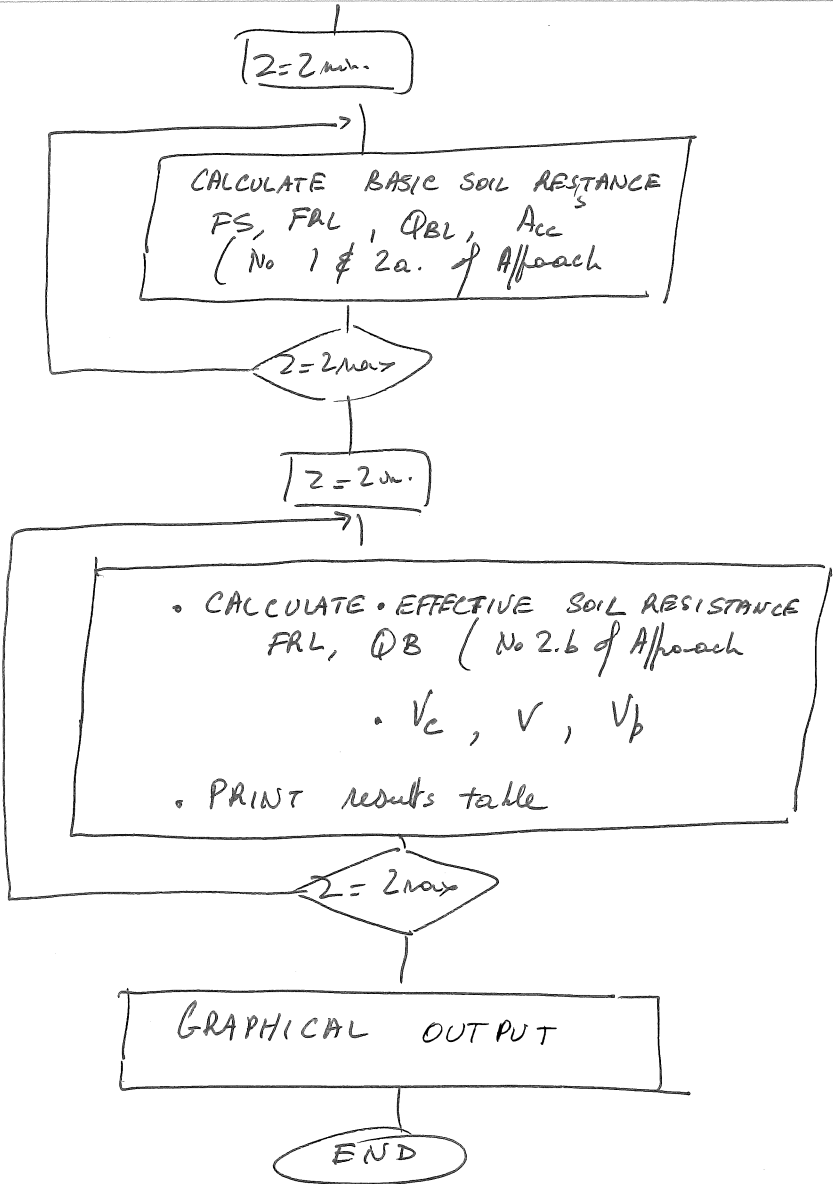 Z = Z min.
CALCULATE BASIC SOIL RESISTANCE
FS, FRL, QBL, Acc
( No 1 & 2a. of Approach
Z = Z max
Z = Z m.
• CALCULATE • EFFECTIVE SOIL RESISTANCE
FRL, QB ( No 2.b of Approach
• Vc, V, Vp
• PRINT results table
Z = Z max
GRAPHICAL OUTPUT
END